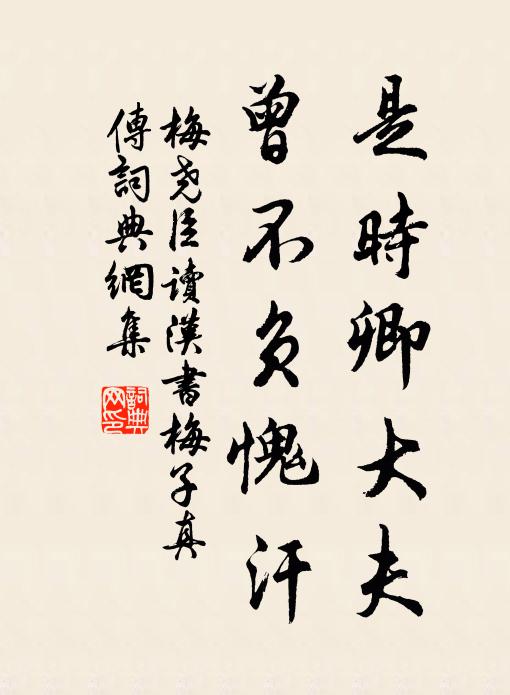 是時卿大夫
曾不負愧汗
梅堯臣讀漢書梅子真
傳詞典網集
詞典
网印